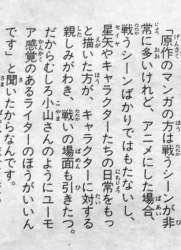 「原作のマンガの方は戦うシーンが非
常に多いけれど、アニメにした場合、
戦うシーンばかりではもたないし、
星矢やキャラクターたちの日常をもっ
と描いた方が、キャラクターに対する
親しみがわき、戦いの場面も引きたつ。
だからむしろ小山さんのようにユーモ
ア感覚のあるライターのほうがいいん
です」と聞いたからなんです。